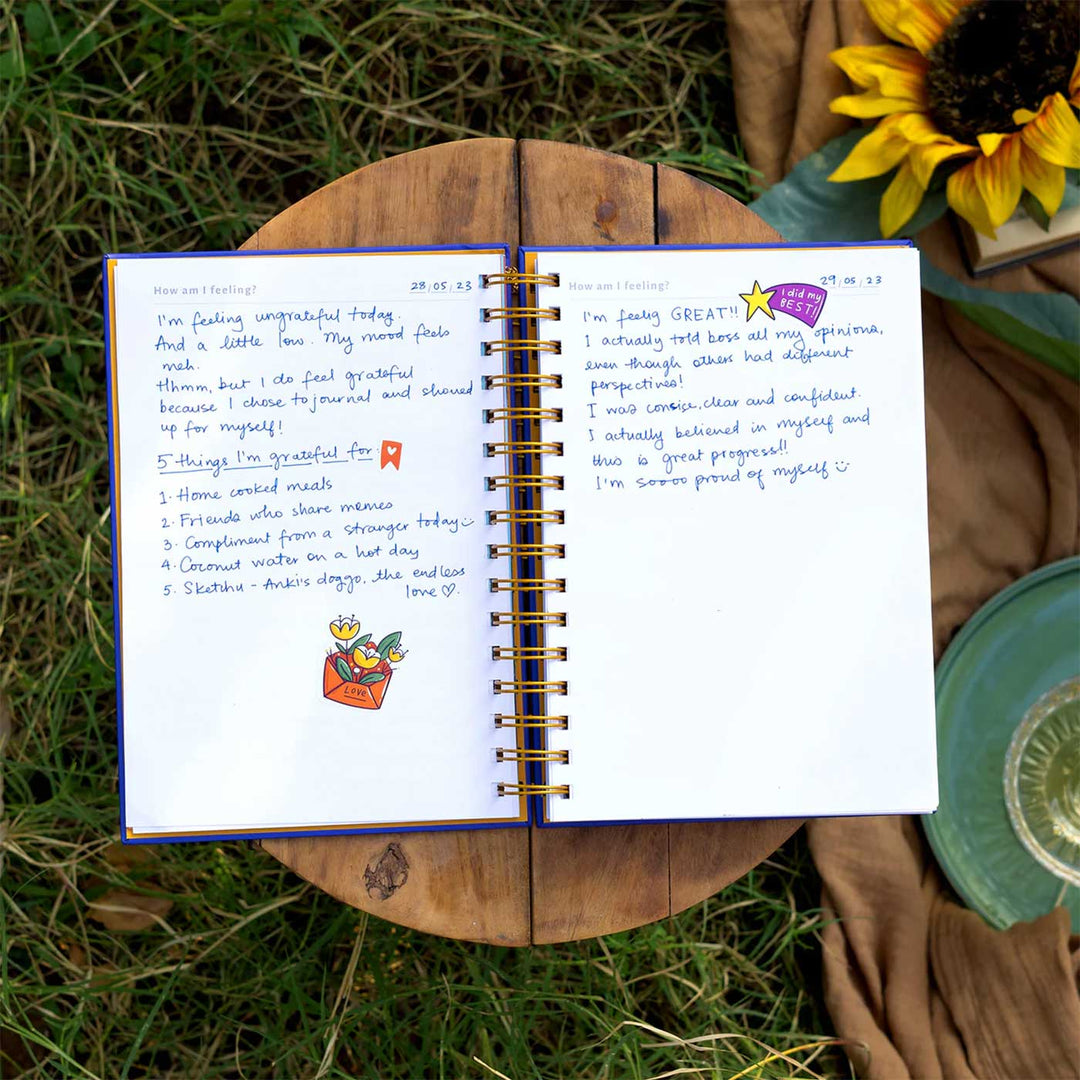 How am I feeling?
28/05/23
I'm feeling ungrateful today.
And a little low. My mood feels
meh.
Hhmm, but I do feel grateful
because I chose to journal and showed
up for myself!
5 things I'm grateful for:
1. Home cooked meals
2. Friends who share memes
3. Compliment from a stranger today
4. Coconut water on a hot day
5. Sketchu - Anki's doggo, the endless
love ♡.
Love
How am I feeling?
29/05/23
I did my
BEST!
I'm feelig GREAT!!
I actually told boss all my opinions,
even though others had different
perspectives!
I was consise, clear and confident.
I actually believed in myself and
this is great progress!!
I'm soooo proud of myself